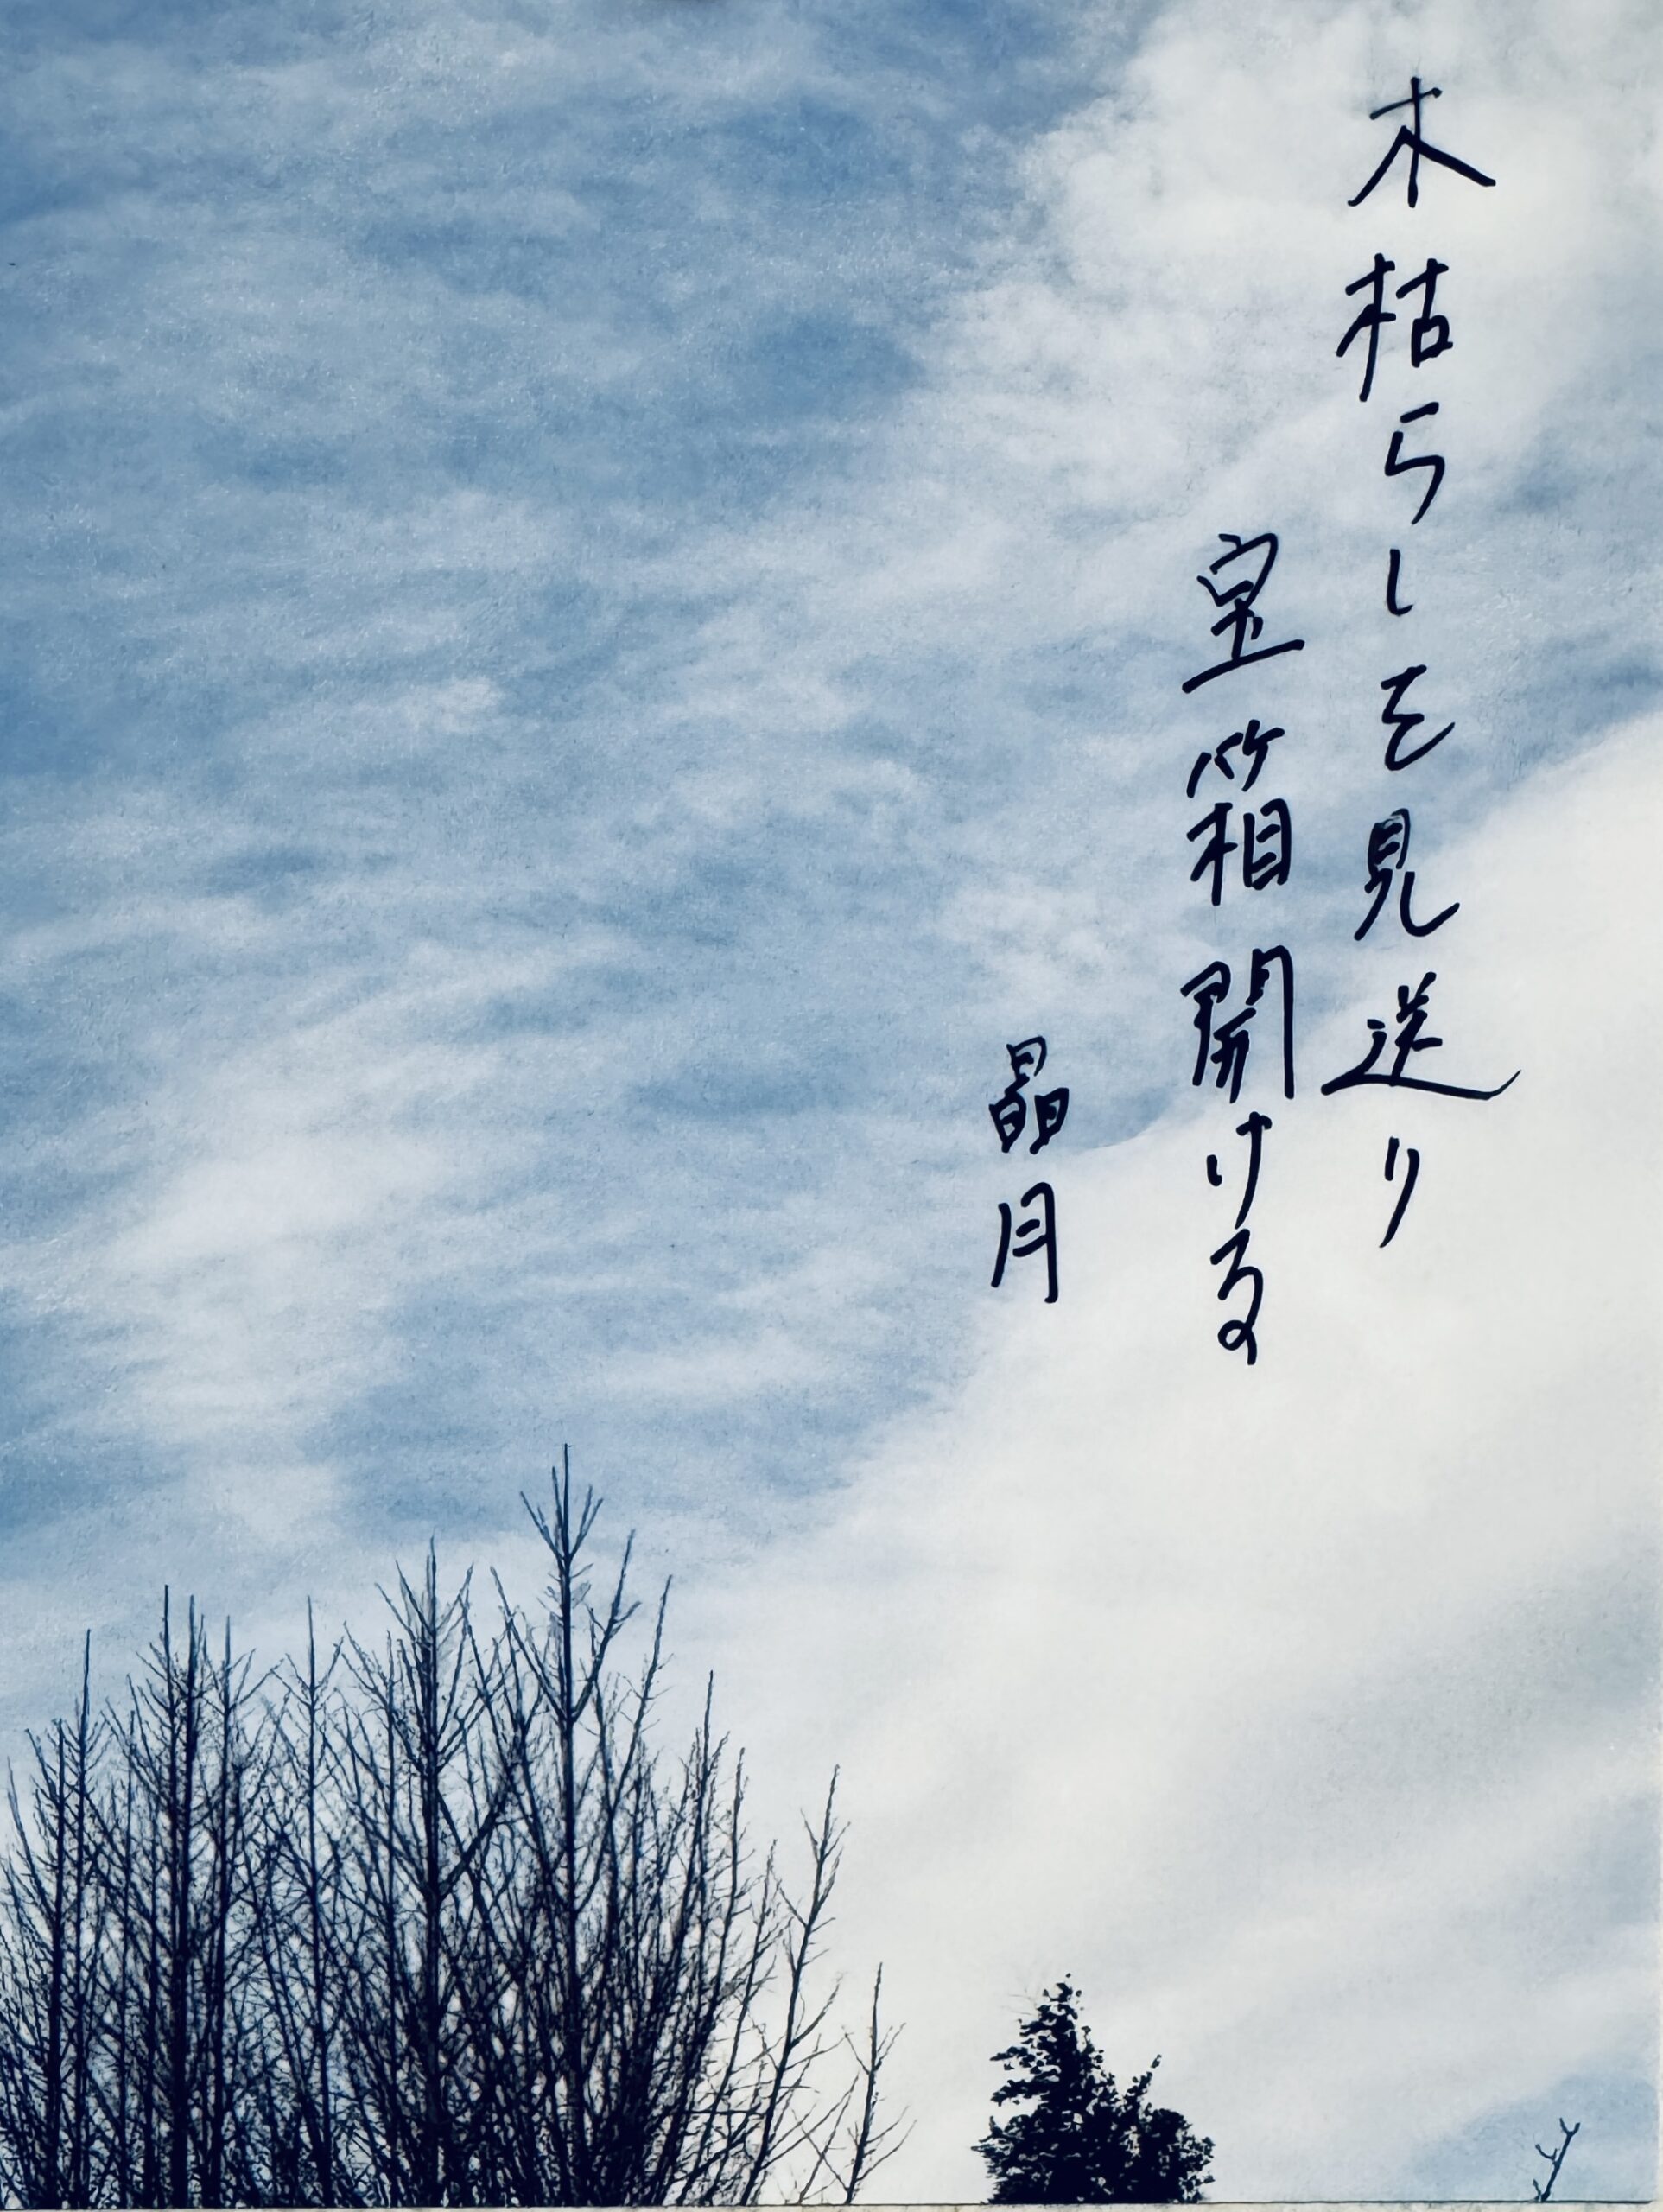 木枯らしを見送り
宝箱開ける
晶月